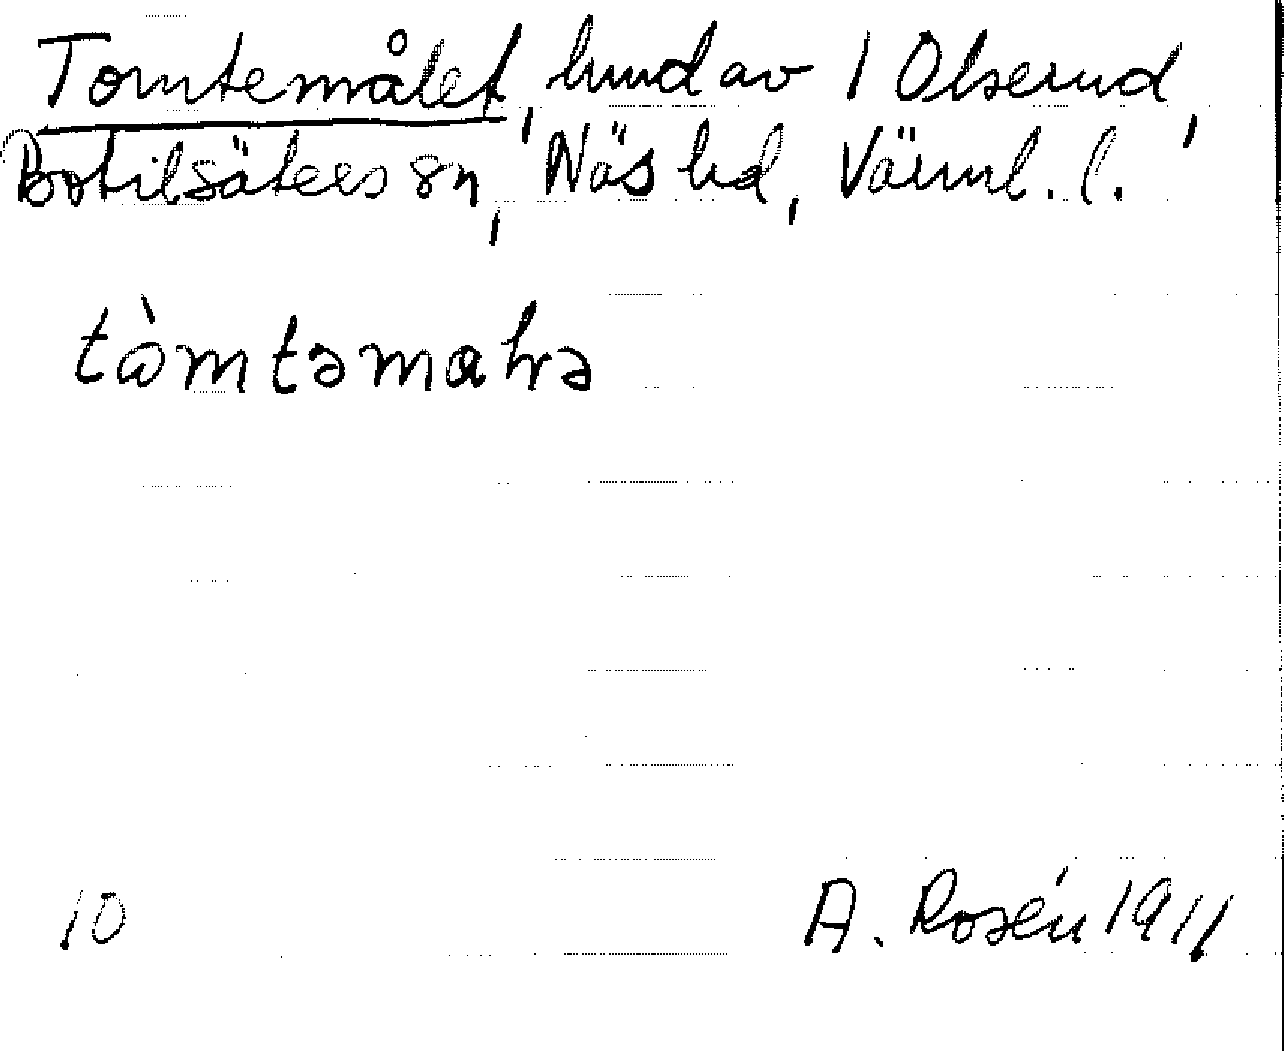 Tomtemålet, hmd av 1 Olserud,
Botilsäters sn, Näs hd, Värml. l.
10
A. Rosén 1911